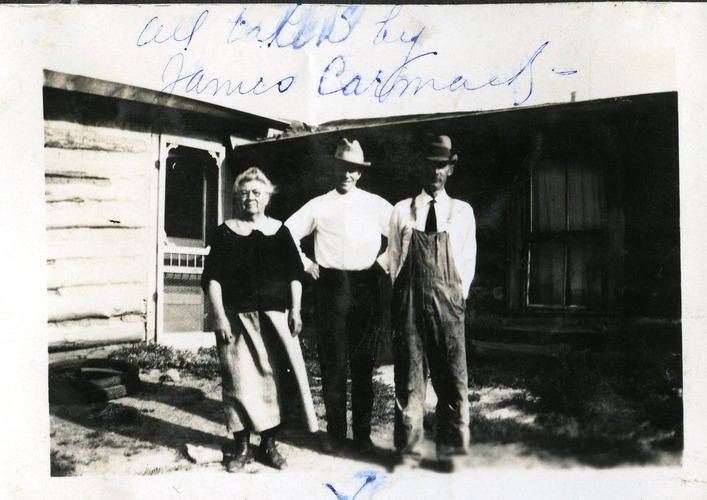 all taken by
James Carmack -